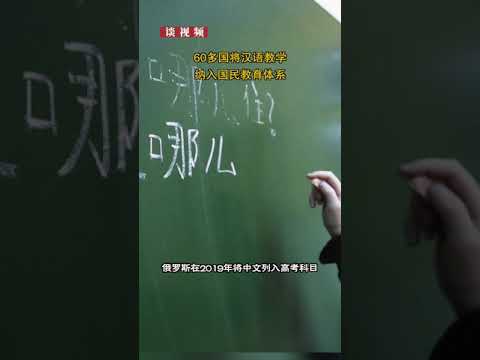 谈视频
60多国将汉语教学
纳入国民教育体系
哪儿住?
哪儿
俄罗斯在2019年将中文列入高考科目